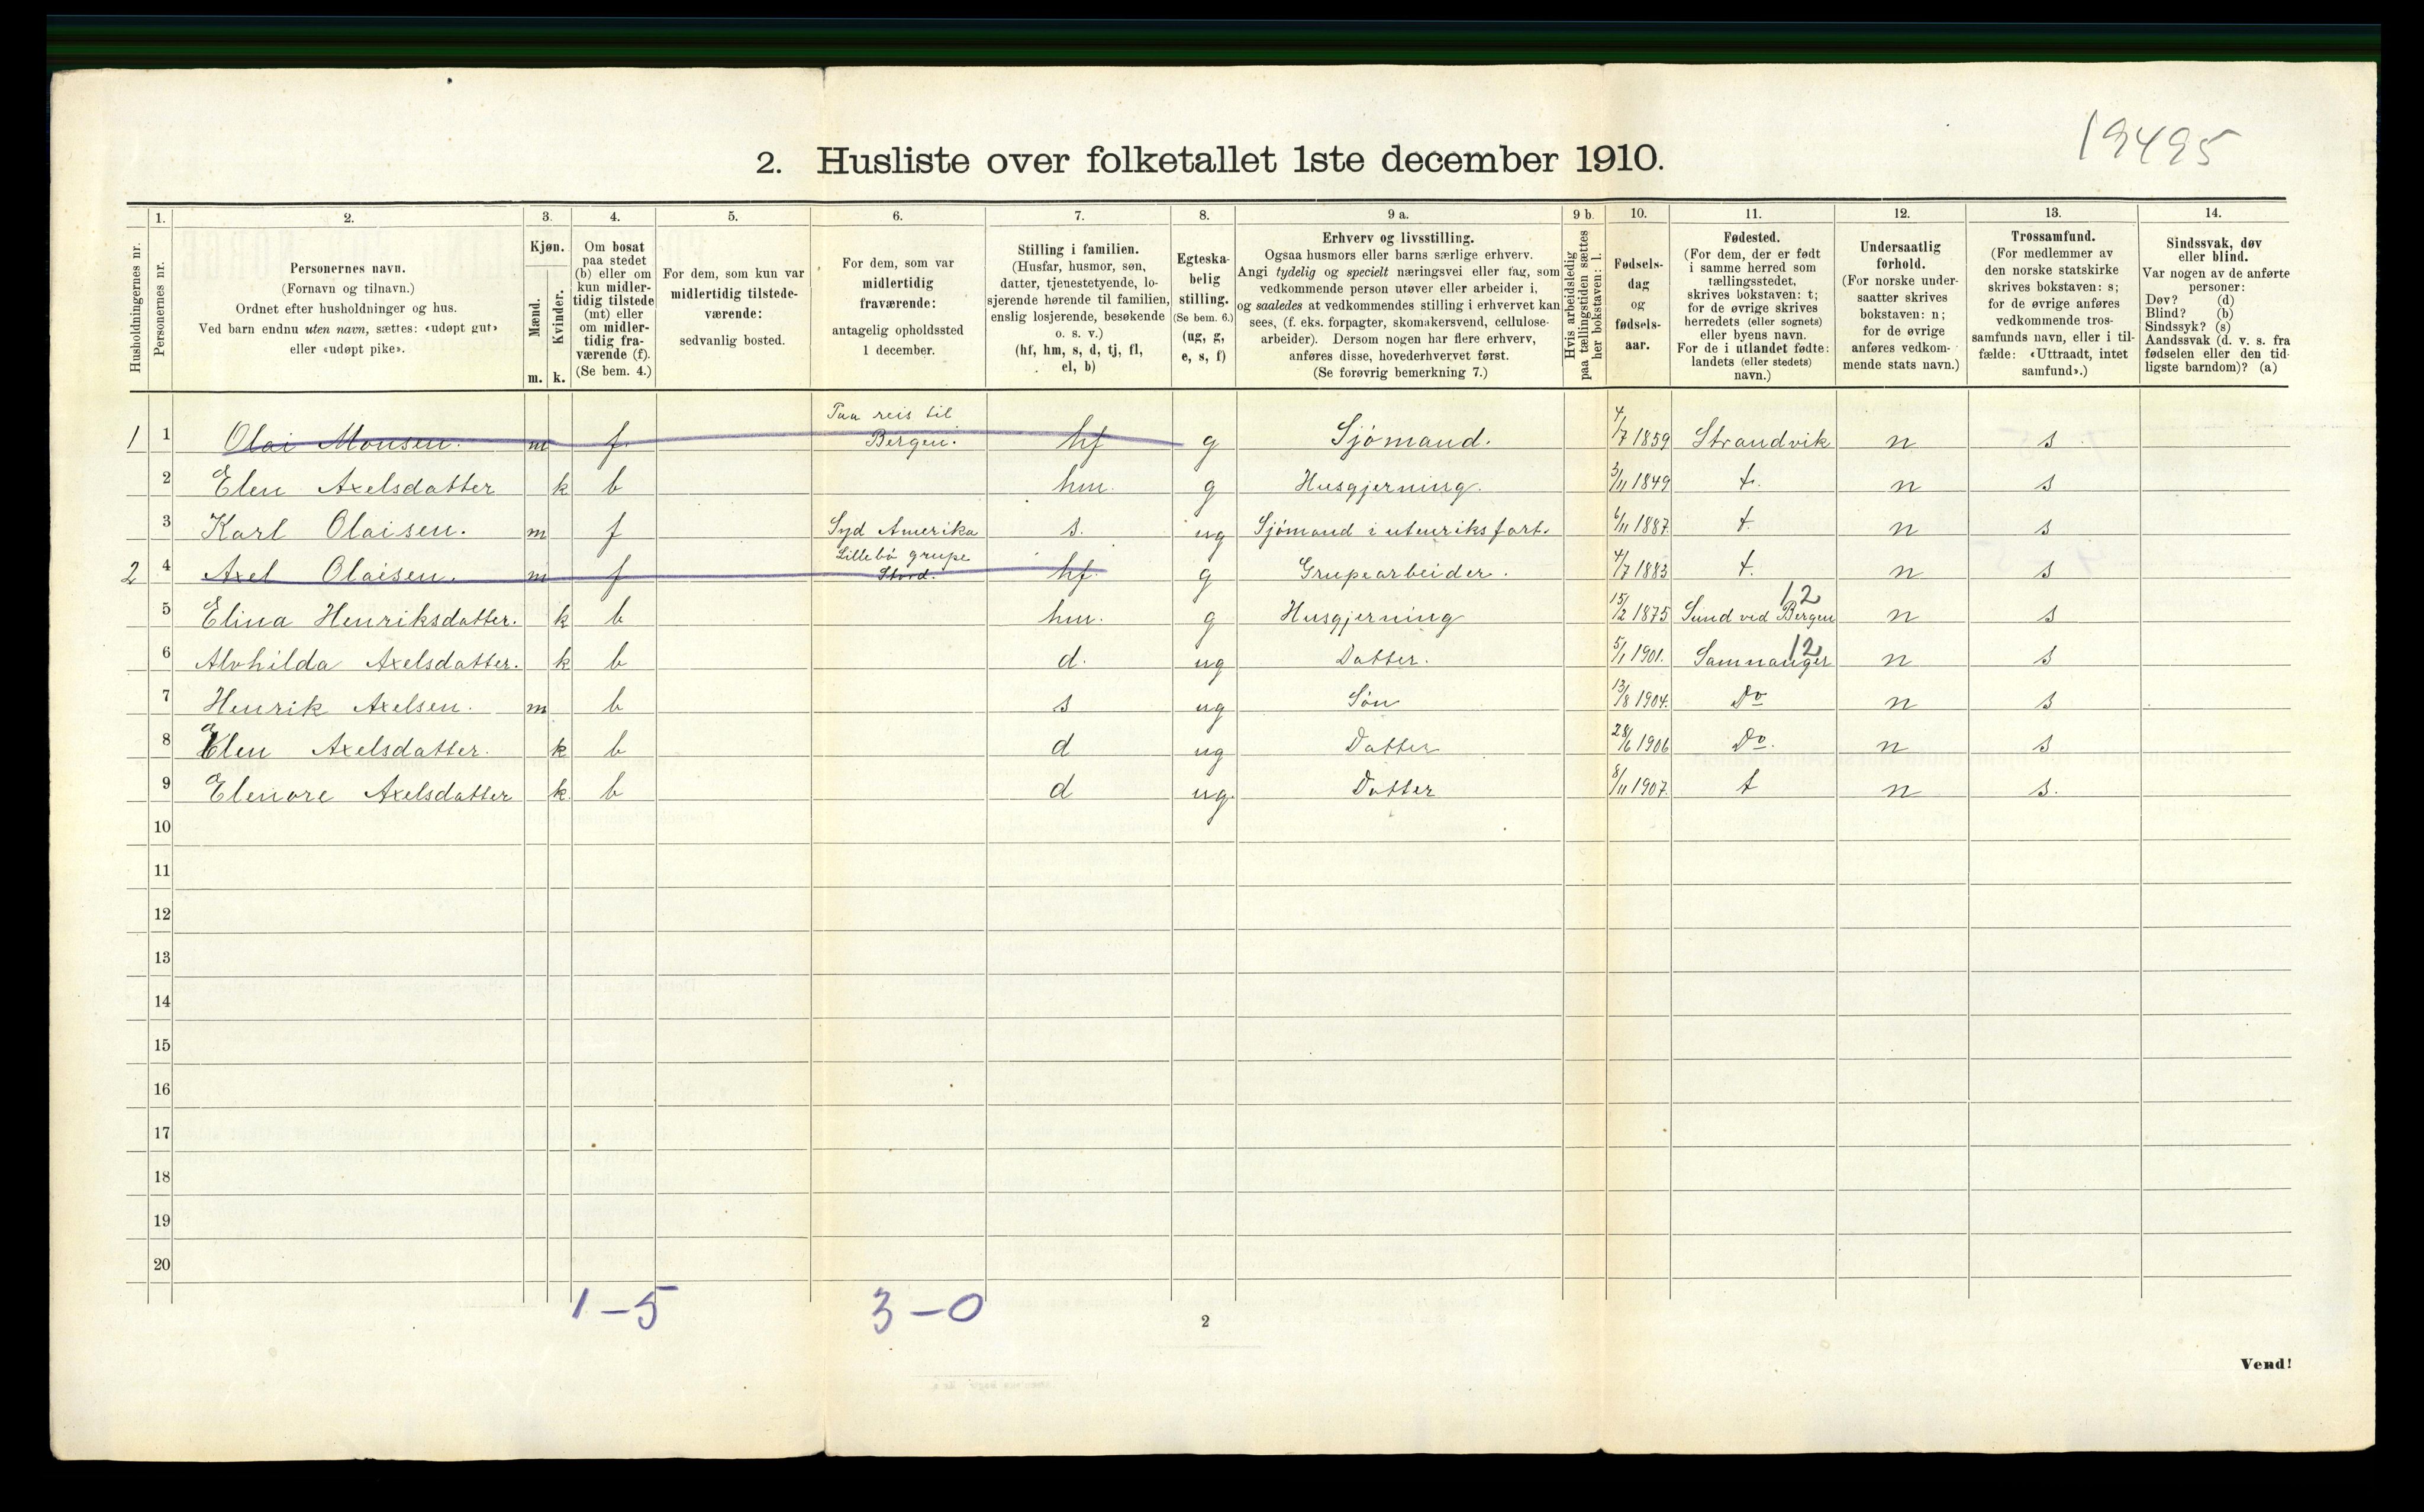 19495
2. Husliste over folketallet 1ste december 1910.
1. 2. 3. 4. 5. 6. 7. 8. 9 a. 9 b. 10. 11. 12. 13. 14.
Husholdningernes nr.
Personernes nr.
Personernes navn.
(Fornavn og tilnavn.)
Ordnet efter husholdninger og hus.
Ved barn endnu uten navn, sættes: «udøpt gut»
eller «udøpt pike».
Kjøn.
Mænd.
Kvinder.
m. k.
Om bosat
paa stedet
(b) eller om
kun midler-
tidig tilstede
(mt) eller
om midler-
tidig fra-
værende (f).
(Se bem. 4.)
For dem, som kun var
midlertidig tilstede-
værende:
sedvanlig bosted.
For dem, som var
midlertidig
fraværende:
antagelig opholdssted
1 december.
Stilling i familien.
(Husfar, husmor, søn,
datter, tjenestetyende, lo-
sjerende hørende til familien,
enslig losjerende, besøkende
o. s. v.)
(hf, hm, s, d, tj, fl,
el, b)
Egteska-
belig
stilling.
(Se bem. 6.)
(ug, g,
e, s, f)
Erhverv og livsstilling.
Ogsaa husmors eller barns særlige erhverv.
Angi tydelig og specielt næringsvei eller fag, som
vedkommende person utøver eller arbeider i,
og saaledes at vedkommendes stilling i erhvervet kan
sees, (f. eks. forpagter, skomakersvend, cellulose-
arbeider). Dersom nogen har flere erhverv,
anføres disse, hovederhvervet først.
(Se forøvrig bemerkning 7.)
Hvis arbeidsledig
paa tællingstiden sættes
her bokstaven: l.
Fødsels-
dag
og
fødsels-
aar.
Fødested.
(For dem, der er født
i samme herred som
tællingsstedet,
skrives bokstaven: t;
for de øvrige skrives
herredets (eller sognets)
eller byens navn.
For de i utlandet fødte:
landets (eller stedets)
navn.)
Undersaatlig
forhold.
(For norske under-
saatter skrives
bokstaven: n;
for de øvrige
anføres vedkom-
mende stats navn.)
Trossamfund.
(For medlemmer av
den norske statskirke
skrives bokstaven: s;
for de øvrige anføres
vedkommende tros-
samfunds navn, eller i til-
fælde: «Uttraadt, intet
samfund».)
Sindssvak, døv
eller blind.
Var nogen av de anførte
personer:
Døv? (d)
Blind? (b)
Sindssyk? (s)
Aandssvak (d. v. s. fra
fødselen eller den tid-
ligste barndom)? (a)
1 1 Olai Monsen. m f Paa reis til Bergen. hf g Sjömand. 4/7 1859 Strandvik n s
2 Elen Axelsdatter k b hm. g Husgjerning. 3/11 1849 t. n s
3 Karl Olaisen. m f Syd Amerika s. ug Sjömand i utenriksfart. 6/11 1887. t. n s
2 4 Axel Olaisen. m f Lillebö grupe Stord. hf. g Grupearbeider. 4/7 1883 t. n s
5 Elina Henriksdatter. k b hm. g Husgjerning 15/2 1875 Sund ved Bergen 12 n s
6 Alvhilda Axelsdatter. k b d. ug Datter. 5/1 1901. Samnanger 12 n s
7 Henrik Axelsen. m b s ug Sön 13/8 1904. Do n s
8 Elen Axelsdatter. k b d ug Datter 28/6 1906 Do. n s
9 Elenore Axelsdatter k b d ug. Datter 8/11 1907. t n s.
10
11
12
13
14
15
16
17
18
19
20
1 – 5 3 – 0
2
Vend!